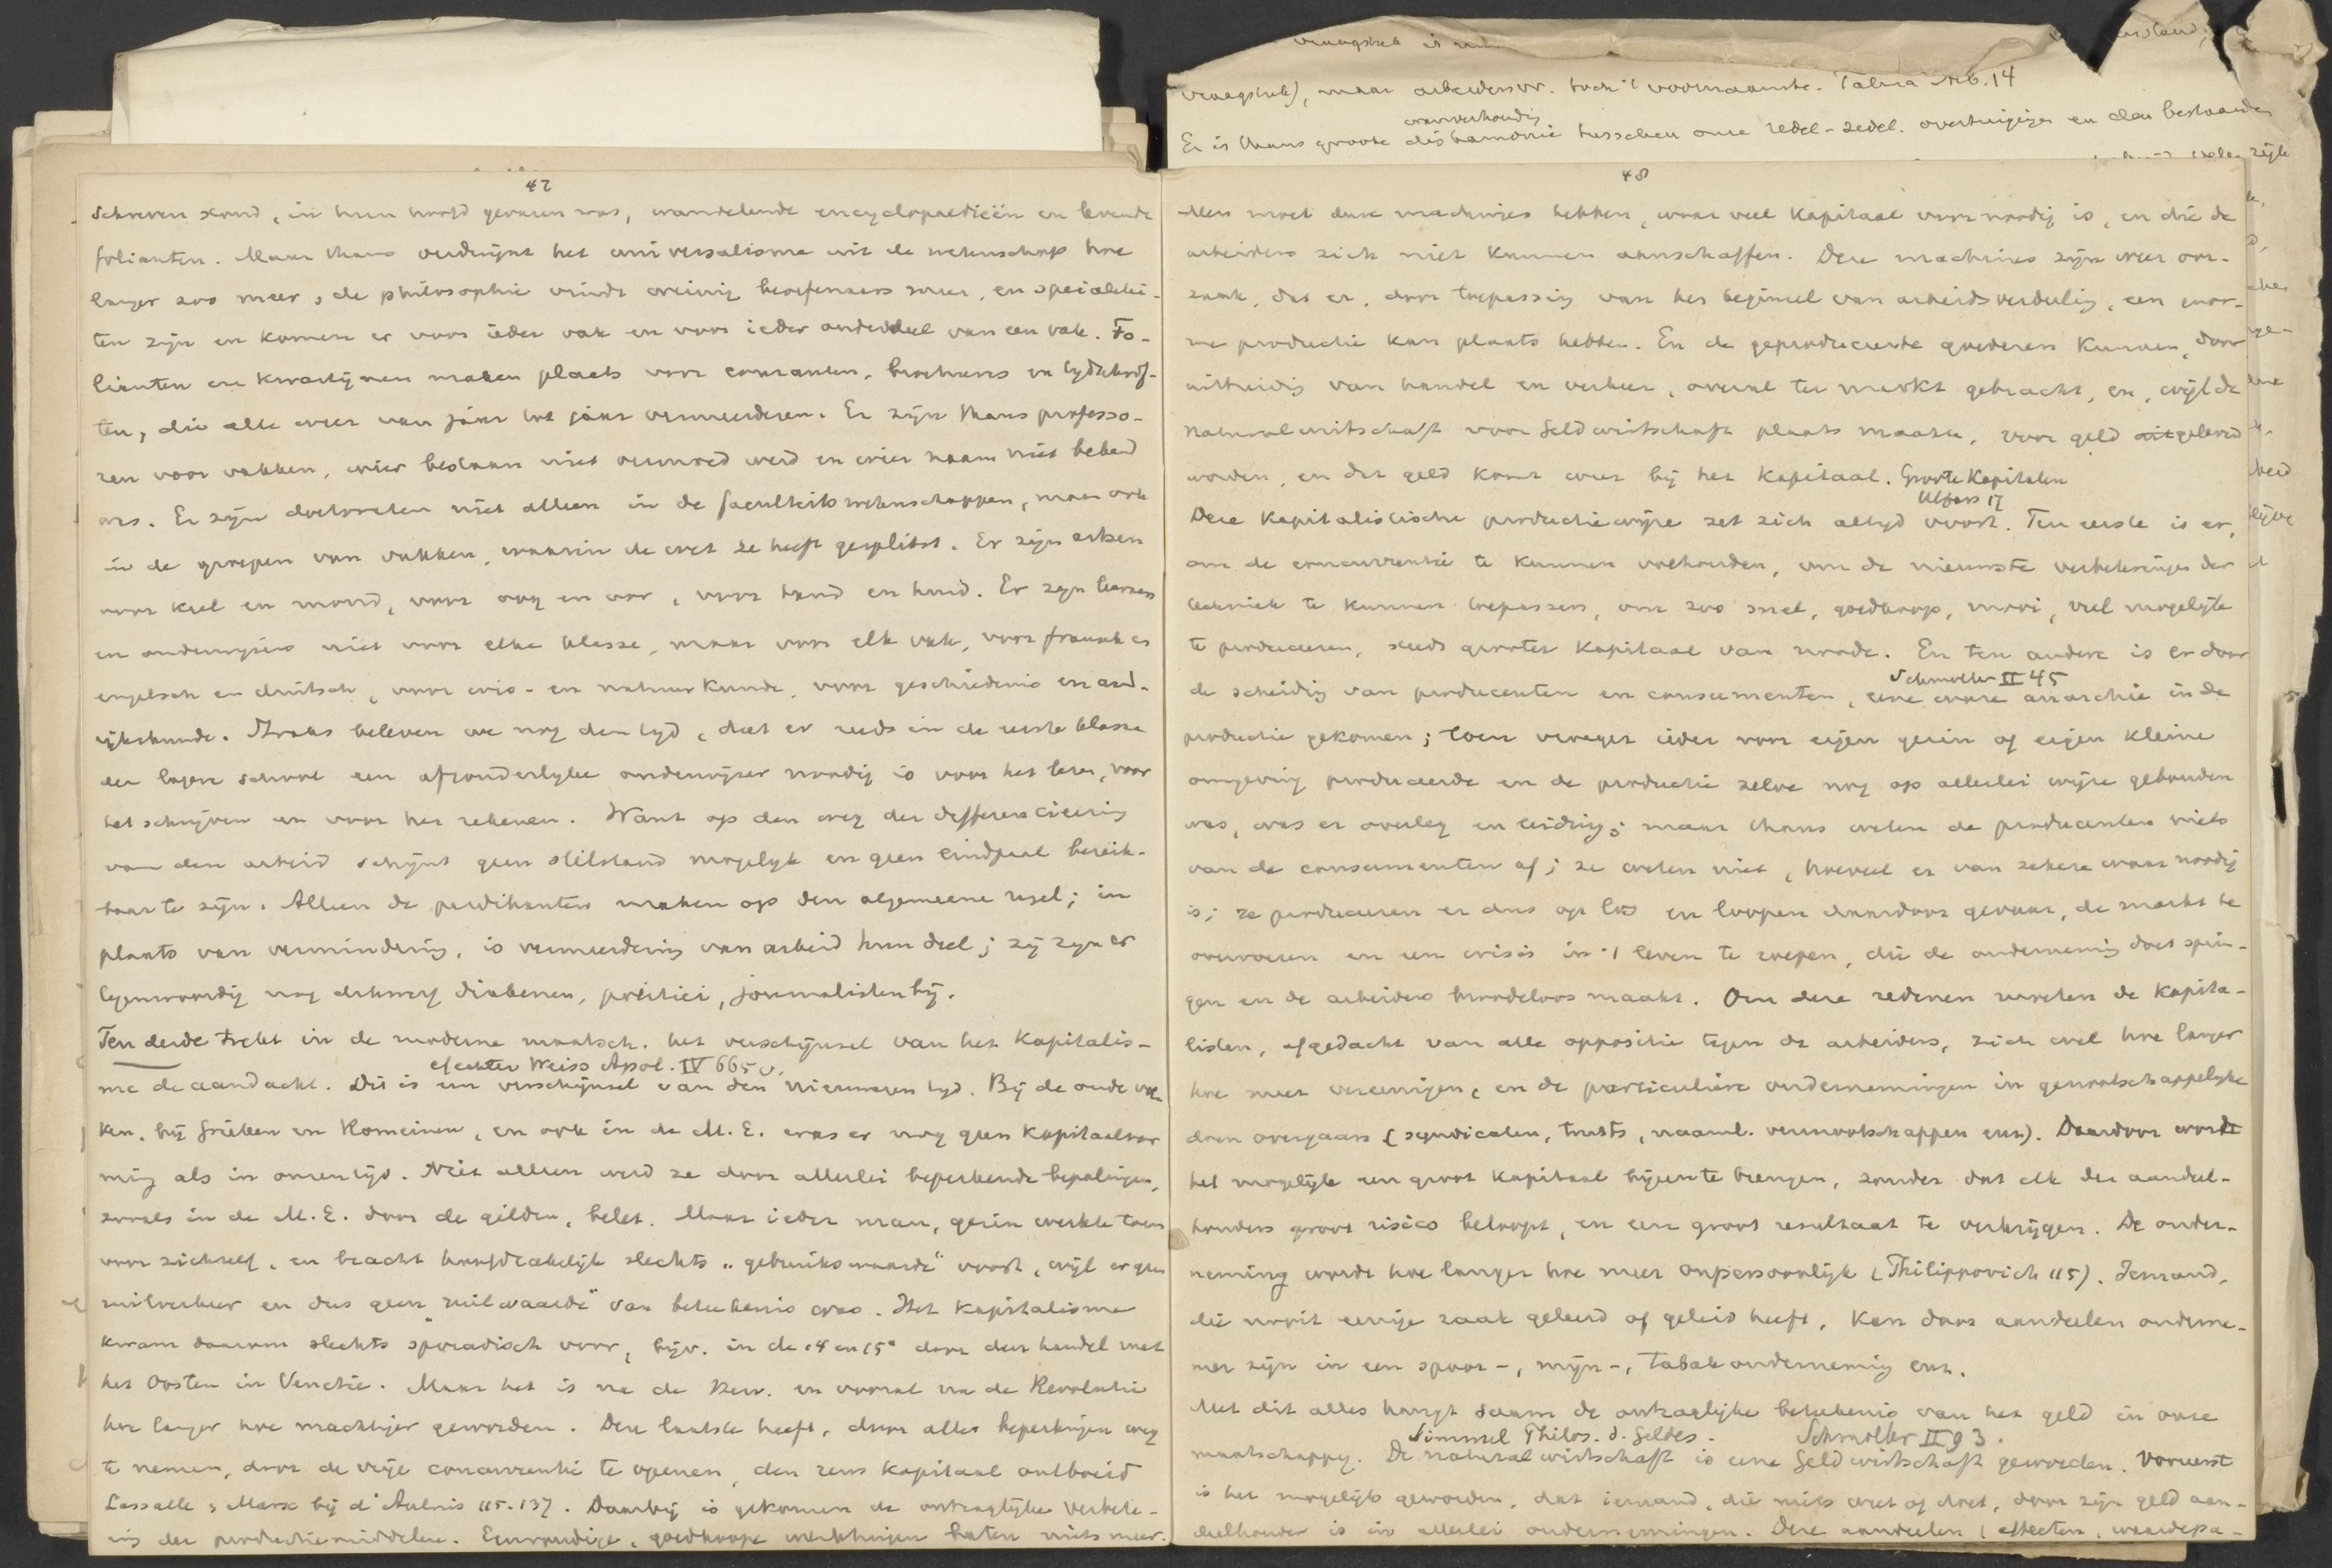 vraagstuk is
vraagstuk), maar arbeidersvr. toch 't voornaamste. Talma Arb. 14
wanverhouding
Er is thans groote disharmonie tusschen onze redel-zedel. overtuigingen en den bestaanden
47
schreven stond, in hun hoofd gevaren was, wandelende encyclopaedieën en levende
folianten. Maar thans verdwijnt het universalisme uit de wetenschap hoe
langer zoo meer, de philosophie vindt weinig beoefenaars meer, en specialitei-
ten zijn en komen er voor ieder vak en voor ieder onderdeel van een vak. Fo-
lianten en kwartijnen maken plaats voor couranten, brochures en tydschrif-
ten, die alle weer van jaar tot jaar vermeerderen. Er zijn thans professo-
ren voor vakken, wier bestaan niet vermoed werd en wier naam niet bekend
was. Er zijn doctoraten niet alleen in de faculteitswetenschappen, maar ook
in de groepen van vakken, waarin de wet ze heeft gesplitst. Er zijn artsen
voor keel en mond, voor oog en oor, voor tand en huid. Er zyn leeraars
en onderwyzers niet voor elke klasse, maar voor elk vak, voor fransch en
engelsch en duitsch, voor wis- en natuurkunde, voor geschiedenis en aard-
rijkskunde. Straks beleven we nog den tyd, dat er reeds in de eerste klasse
der lagere school een afzonderlyke onderwijzer noodig is voor het lezen, voor
het schrijven en voor het rekenen. Want op den weg der differencieering
van den arbeid schijnt geen stilstand mogelyk en geen eindpaal bereik-
baar te zijn. Alleen de predikanten maken op den algemeene regel; in
plaats van vermindering, is vermeerdering van arbeid hun deel; zij zyn er
tegenwoordig nog behalve diakenen, politici, journalisten bij.
Ten derde trekt in de moderne maatsch. het verschijnsel van het Kapitalis-
echter Weiss Apol. IV 665 v.
me de aandacht. Dit is een verschijnsel van den nieuweren tyd. Bij de oude vol-
ken, bij Grieken en Romeinen, en ook in de M. E. was er nog geen Kapitaalvor
ming als in onzen tijd. Niet alleen werd ze door allerlei beperkende bepalingen,
zooals in de M. E. door de gilden, belet. Maar ieder man, gezin werkte toen
voor zichzelf, en bracht hoofdzakelijk slechts „gebruikswaarde" voort, wijl er geen
ruilverkeer en dus geen „ruilwaarde" van beteekenis was. Het Kapitalisme
kwam daarom slechts sporadisch voor, bijv. in de 14 en 15e door den handel met
het Oosten in Venetië. Maar het is na de Herv. en vooral na de Revolutie
hoe langer hoe machtiger geworden. Deze laatste heeft, door alle beperkingen weg
te nemen, door de vrije concurrentie te openen, den reus Kapitaal ontboeid
Lassalle, Marx bij d'Aulnis 115-137. Daarbij is gekomen de ontzaglijke verbete-
ring der productiemiddelen. Eenvoudige, goedkoope werktuigen baten niets meer.
48
Men moet dure machines hebben, waar veel Kapitaal voor noodig is, en die de
arbeiders zich niet kunnen aanschaffen. Deze machines zijn weer oor-
zaak, dat er, door toepassing van het beginsel van arbeidsverdeling, een enor-
me productie kan plaats hebben. En de geproduceerde goederen kunnen, door
uitbreiding van handel en verkeer, overal ter markt gebracht, en, wijl de
Naturalwirtschaft voor Geldwirtschaft plaats maakte, voor geld uitgeleverd
worden, en dit geld komt weer bij het Kapitaal. Groote Kapitalen
Deze Kapitalistische productiewijze zet zich altyd voort. Ten eerste is er,
om de concurrentie te kunnen volhouden, om de nieuwste verbeteringen der
techniek te kunnen toepassen, om zoo snel, goedkoop, mooi, veel mogelijk
te produceeren, steeds grooter Kapitaal van noode. En ten andere is er door
Schmoller II 45
de scheiding van producenten en consumenten, eene ware anarchie in de
productie gekomen; toen vroeger ieder voor eigen gezin of eigen kleine
omgeving produceerde en de productie zelve nog op allerlei wijze gebonden
was, was er overleg en leiding; maar thans weten de producenten niets
van de consumenten af; ze weten niet, hoeveel er van zekere waar noodig
is; ze produceeren er dus op los en loopen daardoor gevaar, de markt te
overvoeren en een crisis in 't leven te roepen, die de onderneming doet sprin-
gen en de arbeiders broodeloos maakt. Om deze redenen moeten de Kapita-
listen, afgedacht van alle oppositie tegen de arbeiders, zich wel hoe langer
hoe meer vereenigen, en de particuliere ondernemingen in genootschappelyke
doen overgaan (syndicaten, trusts, naaml. vennootschappen enz). Daardoor wordt
het mogelijk een groot kapitaal bijeen te brengen, zonder dat elk der aandeel-
houders groot risico beloopt, en een groot resultaat te verkrijgen. De onder-
neming wordt hoe langer hoe meer onpersoonlijk (Philippovich 115). Iemand,
die nooit eenige zaak geleerd of geleid heeft, kan door aandeelen onderne-
mer zijn in een spoor-, mijn-, tabak onderneming enz.
Met dit alles hangt saam de ontzaglijke beteekenis van het geld in onze
Simmel Philos. d. Geldes. Schmoller II 93.
maatschappij. De naturalwirtschaft is eene Geldwirtschaft geworden. Vooreerst
is het mogelijk geworden, dat iemand, die niets weet of doet, door zijn geld aan-
deelhouder is in allerlei ondernemingen. Deze aandeelen (effecten, waardepa-